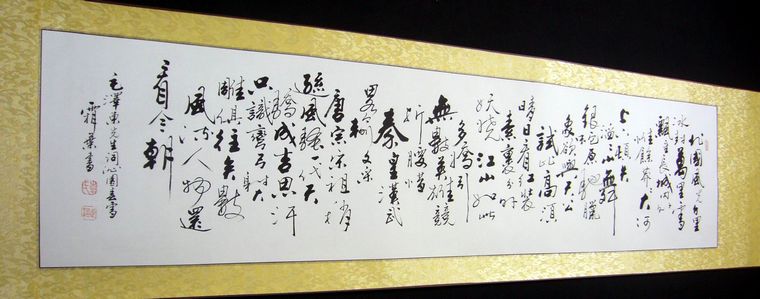 北國風光千里
冰封萬里雪
飄望長城內外
惟餘莽莽大河
上下頓失
滔滔山舞
銀蛇原馳臘
象欲與天公
試比高須
晴日看紅裝
素裹分外
妖嬈江山如此
多嬌引
無數英雄競
折腰惜
秦皇漢武
略輸文采
唐宗宋祖稍
遜風騷一代天
驕成吉思汗
只識彎弓射大
雕俱往矣數
風流人物還
看今朝
毛澤東先生詞沁園春雪
霜葉書